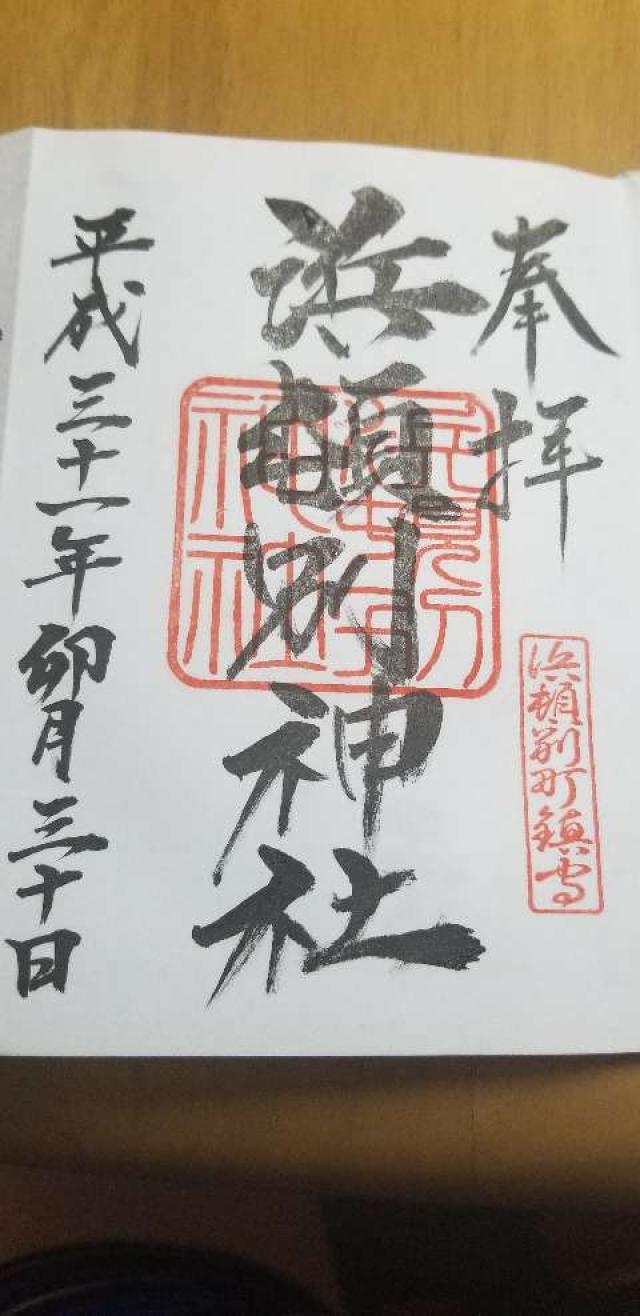 奉拝
浜頓別町鎮守
浜頓別神社
平成三十一年卯月三十日